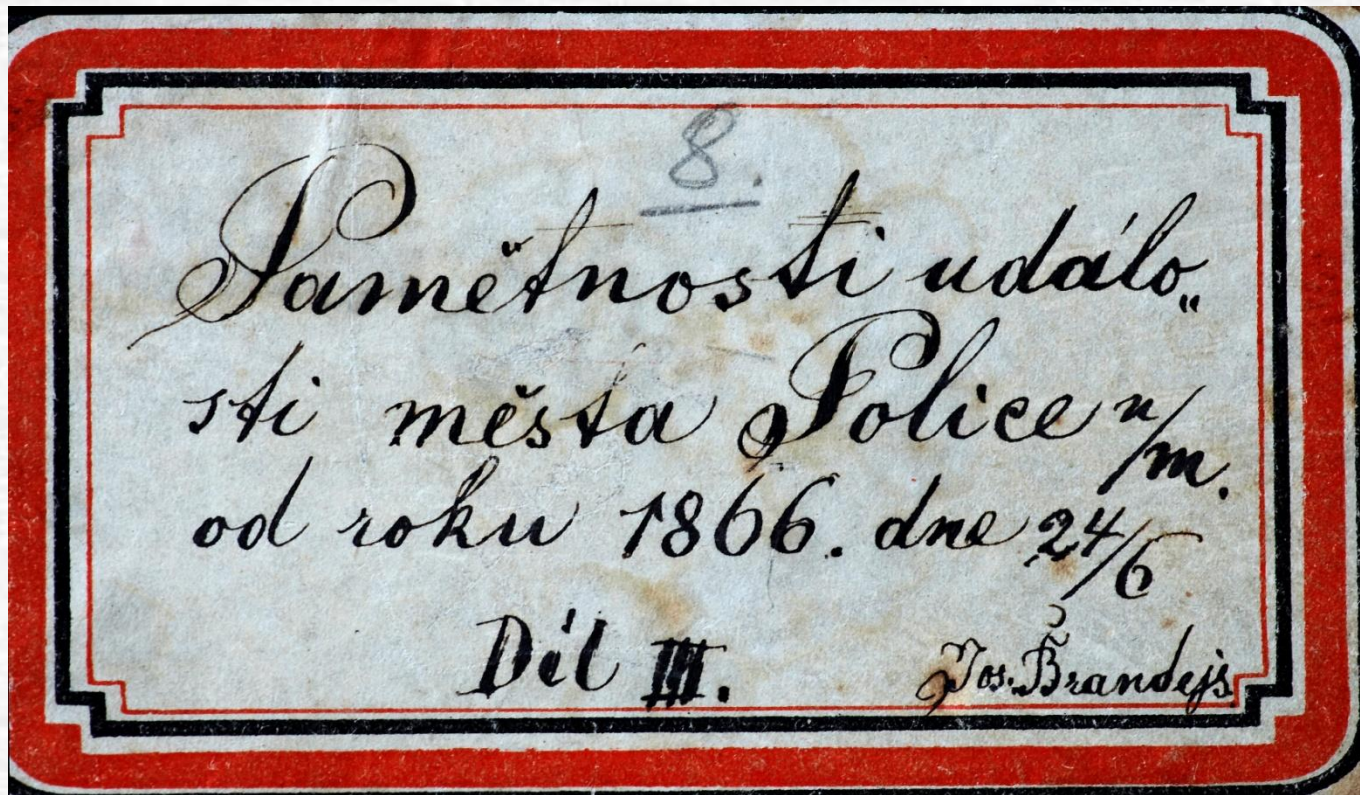 8.
Pamětnosti událo„
sti města Police n/m.
od roku 1866. dne 24/6
Díl III.
Jos. Brandejs